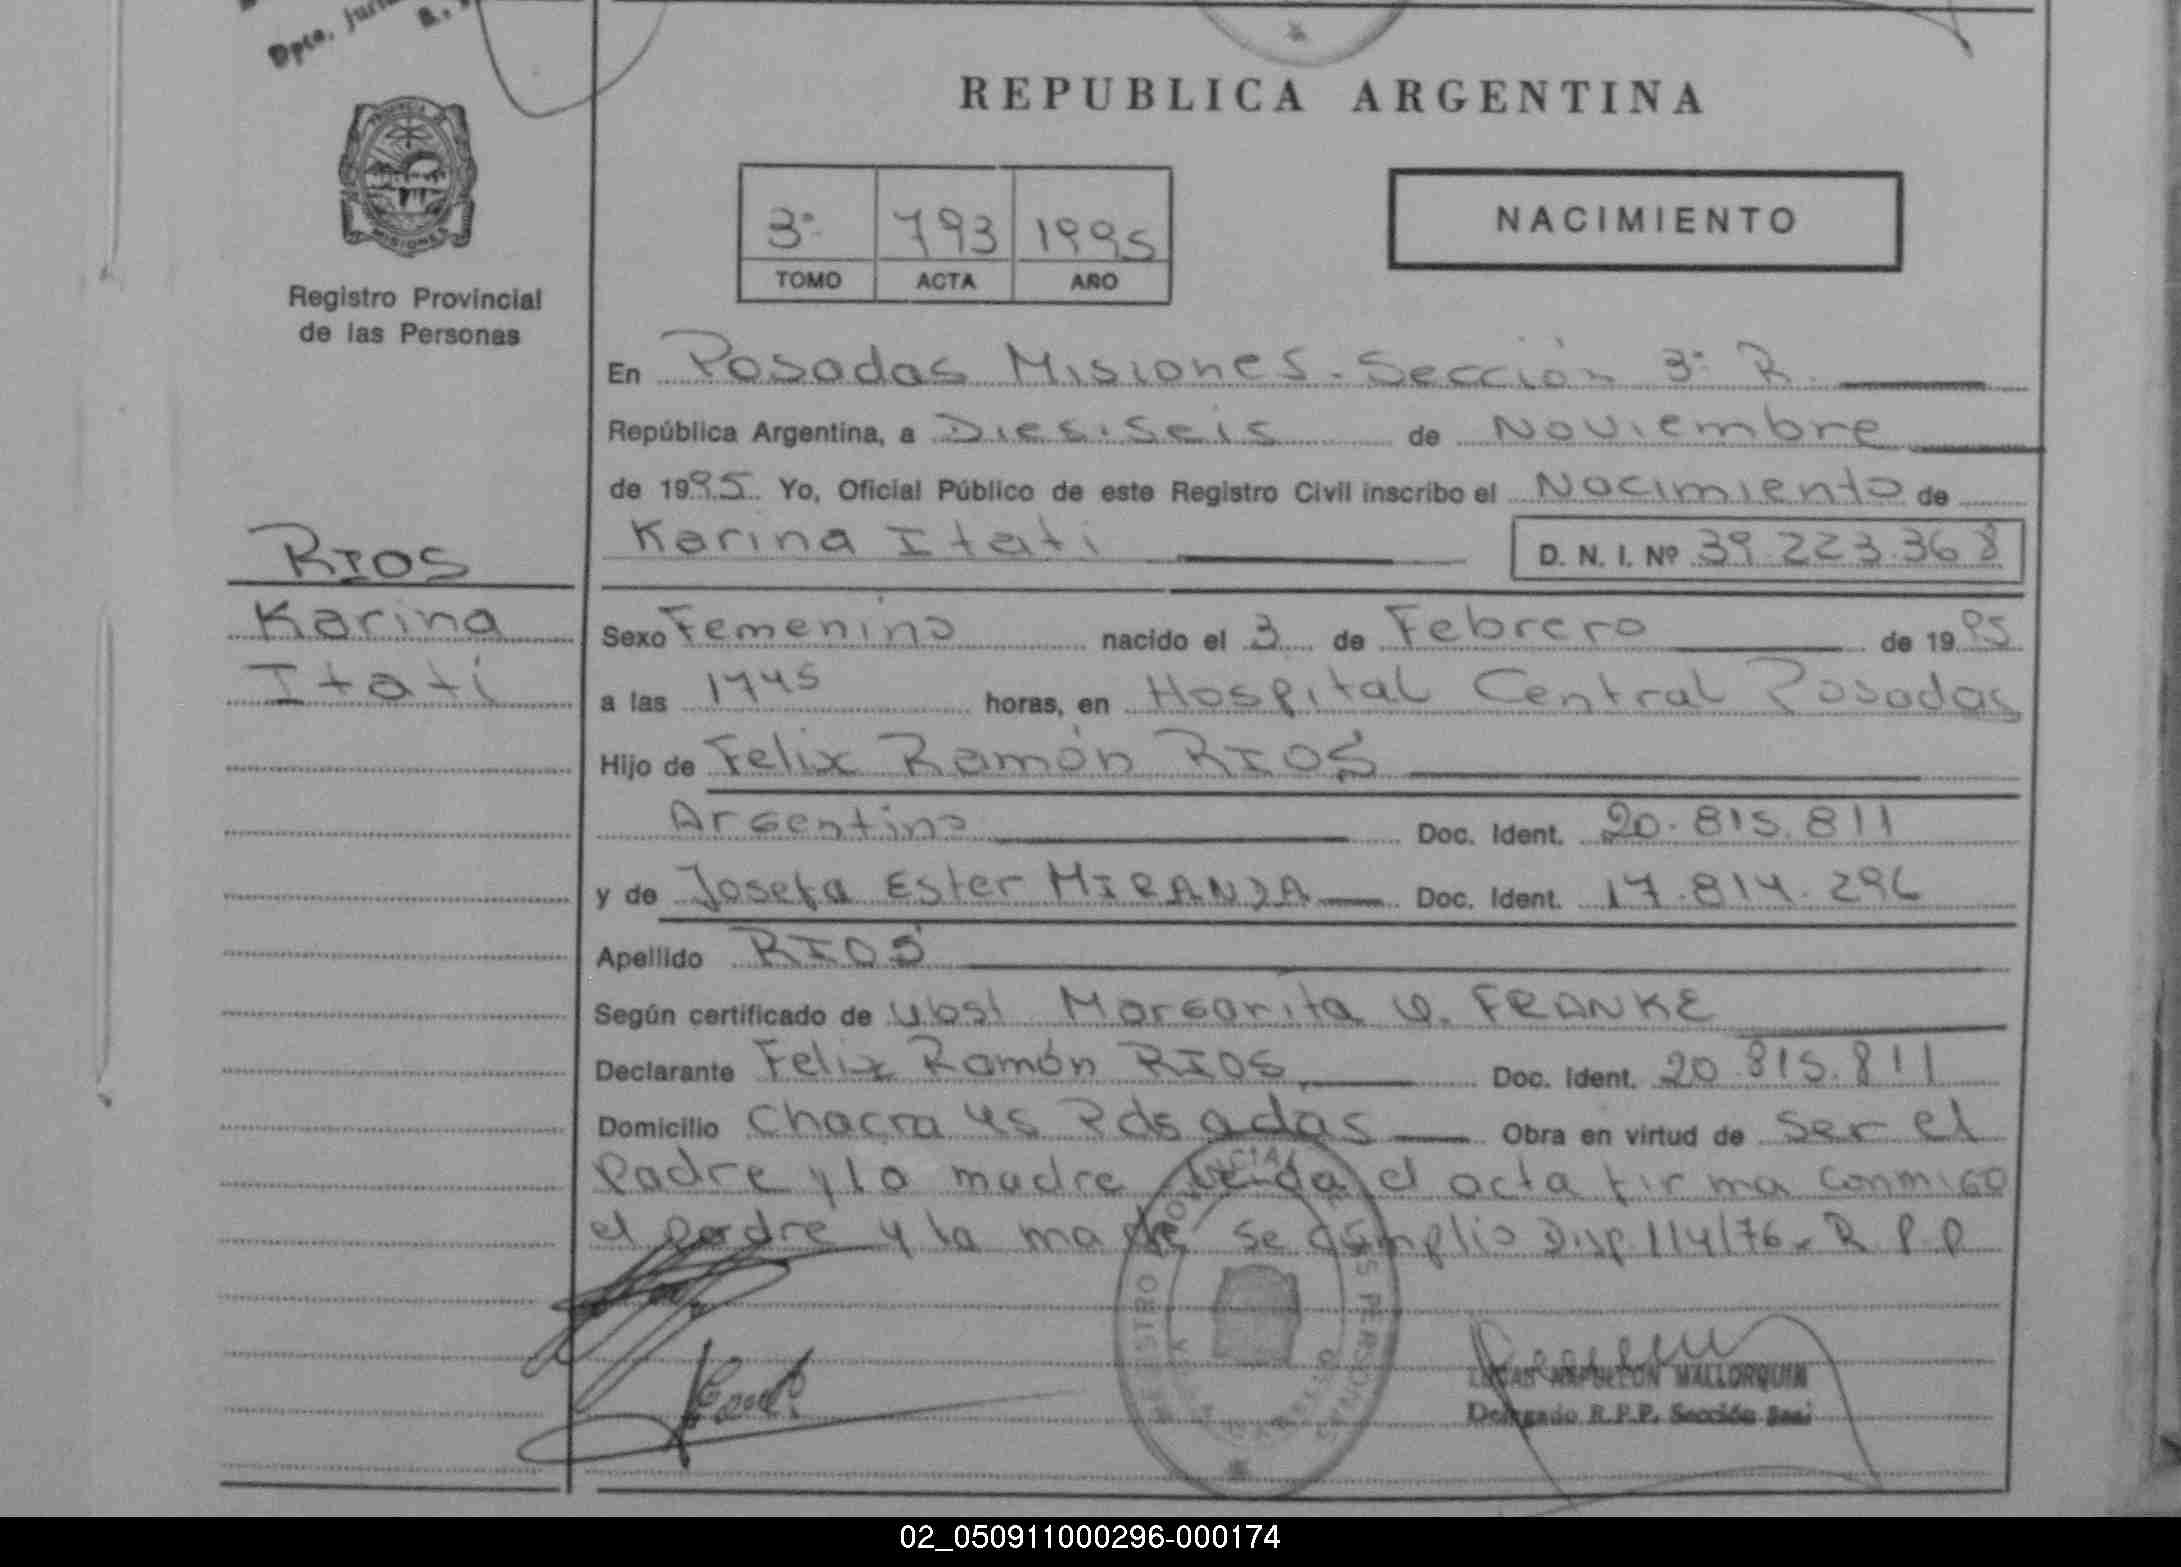 Dpto. Jurí
REPUBLICA ARGENTINA
MISIONES
Registro Provincial
de las Personas
3º 793 1995
TOMO ACTA AÑO
NACIMIENTO
En Posadas Misiones. Sección 3º R.
República Argentina, a Dies.seis de Noviembre
de 1995. Yo, Oficial Público de este Registro Civil inscribo el Nacimiento de
Karina Itati D. N. I. Nº 39.223.368
RIOS
Karina
Itatí
Sexo Femenino nacido el 3 de Febrero de 1995
a las 1745 horas, en Hospital Central Posadas
Hijo de Felix Ramón RIOS
Argentino Doc. Ident. 20.815.811
y de Josefa Ester MIRANDA Doc. Ident. 17.814.296
Apellido RIOS
Según certificado de Obst Margarita FRANKE
Declarante Felix Ramón RIOS Doc. Ident. 20.815.811
Domicilio Chacra 45 Posadas Obra en virtud de ser el
Padre y la madre leida el acta firma conmigo
el padre y la madre se cumplio Disp 114/76. R P P
LUCAS NAPOLEON MALLORQUIN
Delegado R.P.P. Sección 3raj
02_050911000296-000174